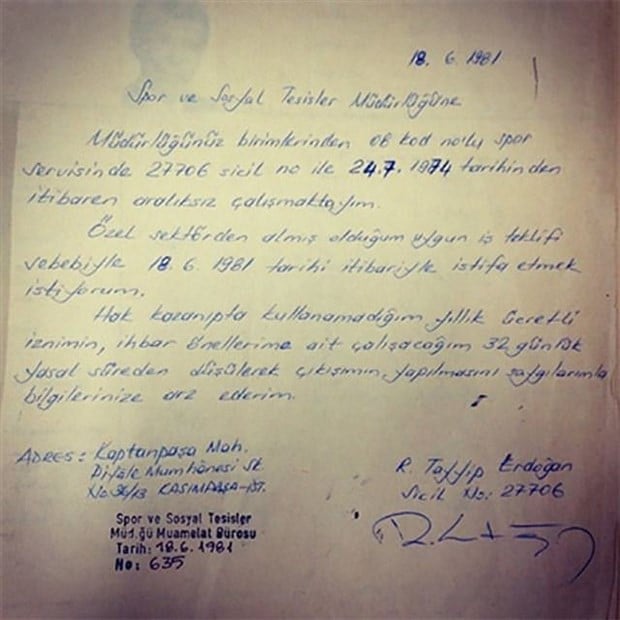 18. 6. 1981
Spor ve Sosyal Tesisler Müdürlüğüne
Müdürlüğünüz birimlerinden 06 kod nolu spor
servisinde 27706 sicil no ile 24.7.1974 tarihinden
itibaren aralıksız çalışmaktayım.
Özel sektörden almış olduğum uygun iş teklifi
sebebiyle 18.6.1981 tarihi itibariyle istifa etmek
istiyorum.
Hak kazanıpta kullanamadığım yıllık ücretli
iznimin, ihbar önellerime ait çalışacağım 32 günlük
yasal süreden düşülerek çıkışımın, yapılmasını saygılarımla
bilgilerinize arz ederim.
ADRES: Kaptanpaşa Mah.
Mumhanesi SK.
KASIMPAŞA-İST.
R. Tayyip Erdoğan
Sicil No: 27706
Spor ve Sosyal Tesisler
Müd.ğü Muamelat Bürosu
Tarih: 18.6.1981
No: 635